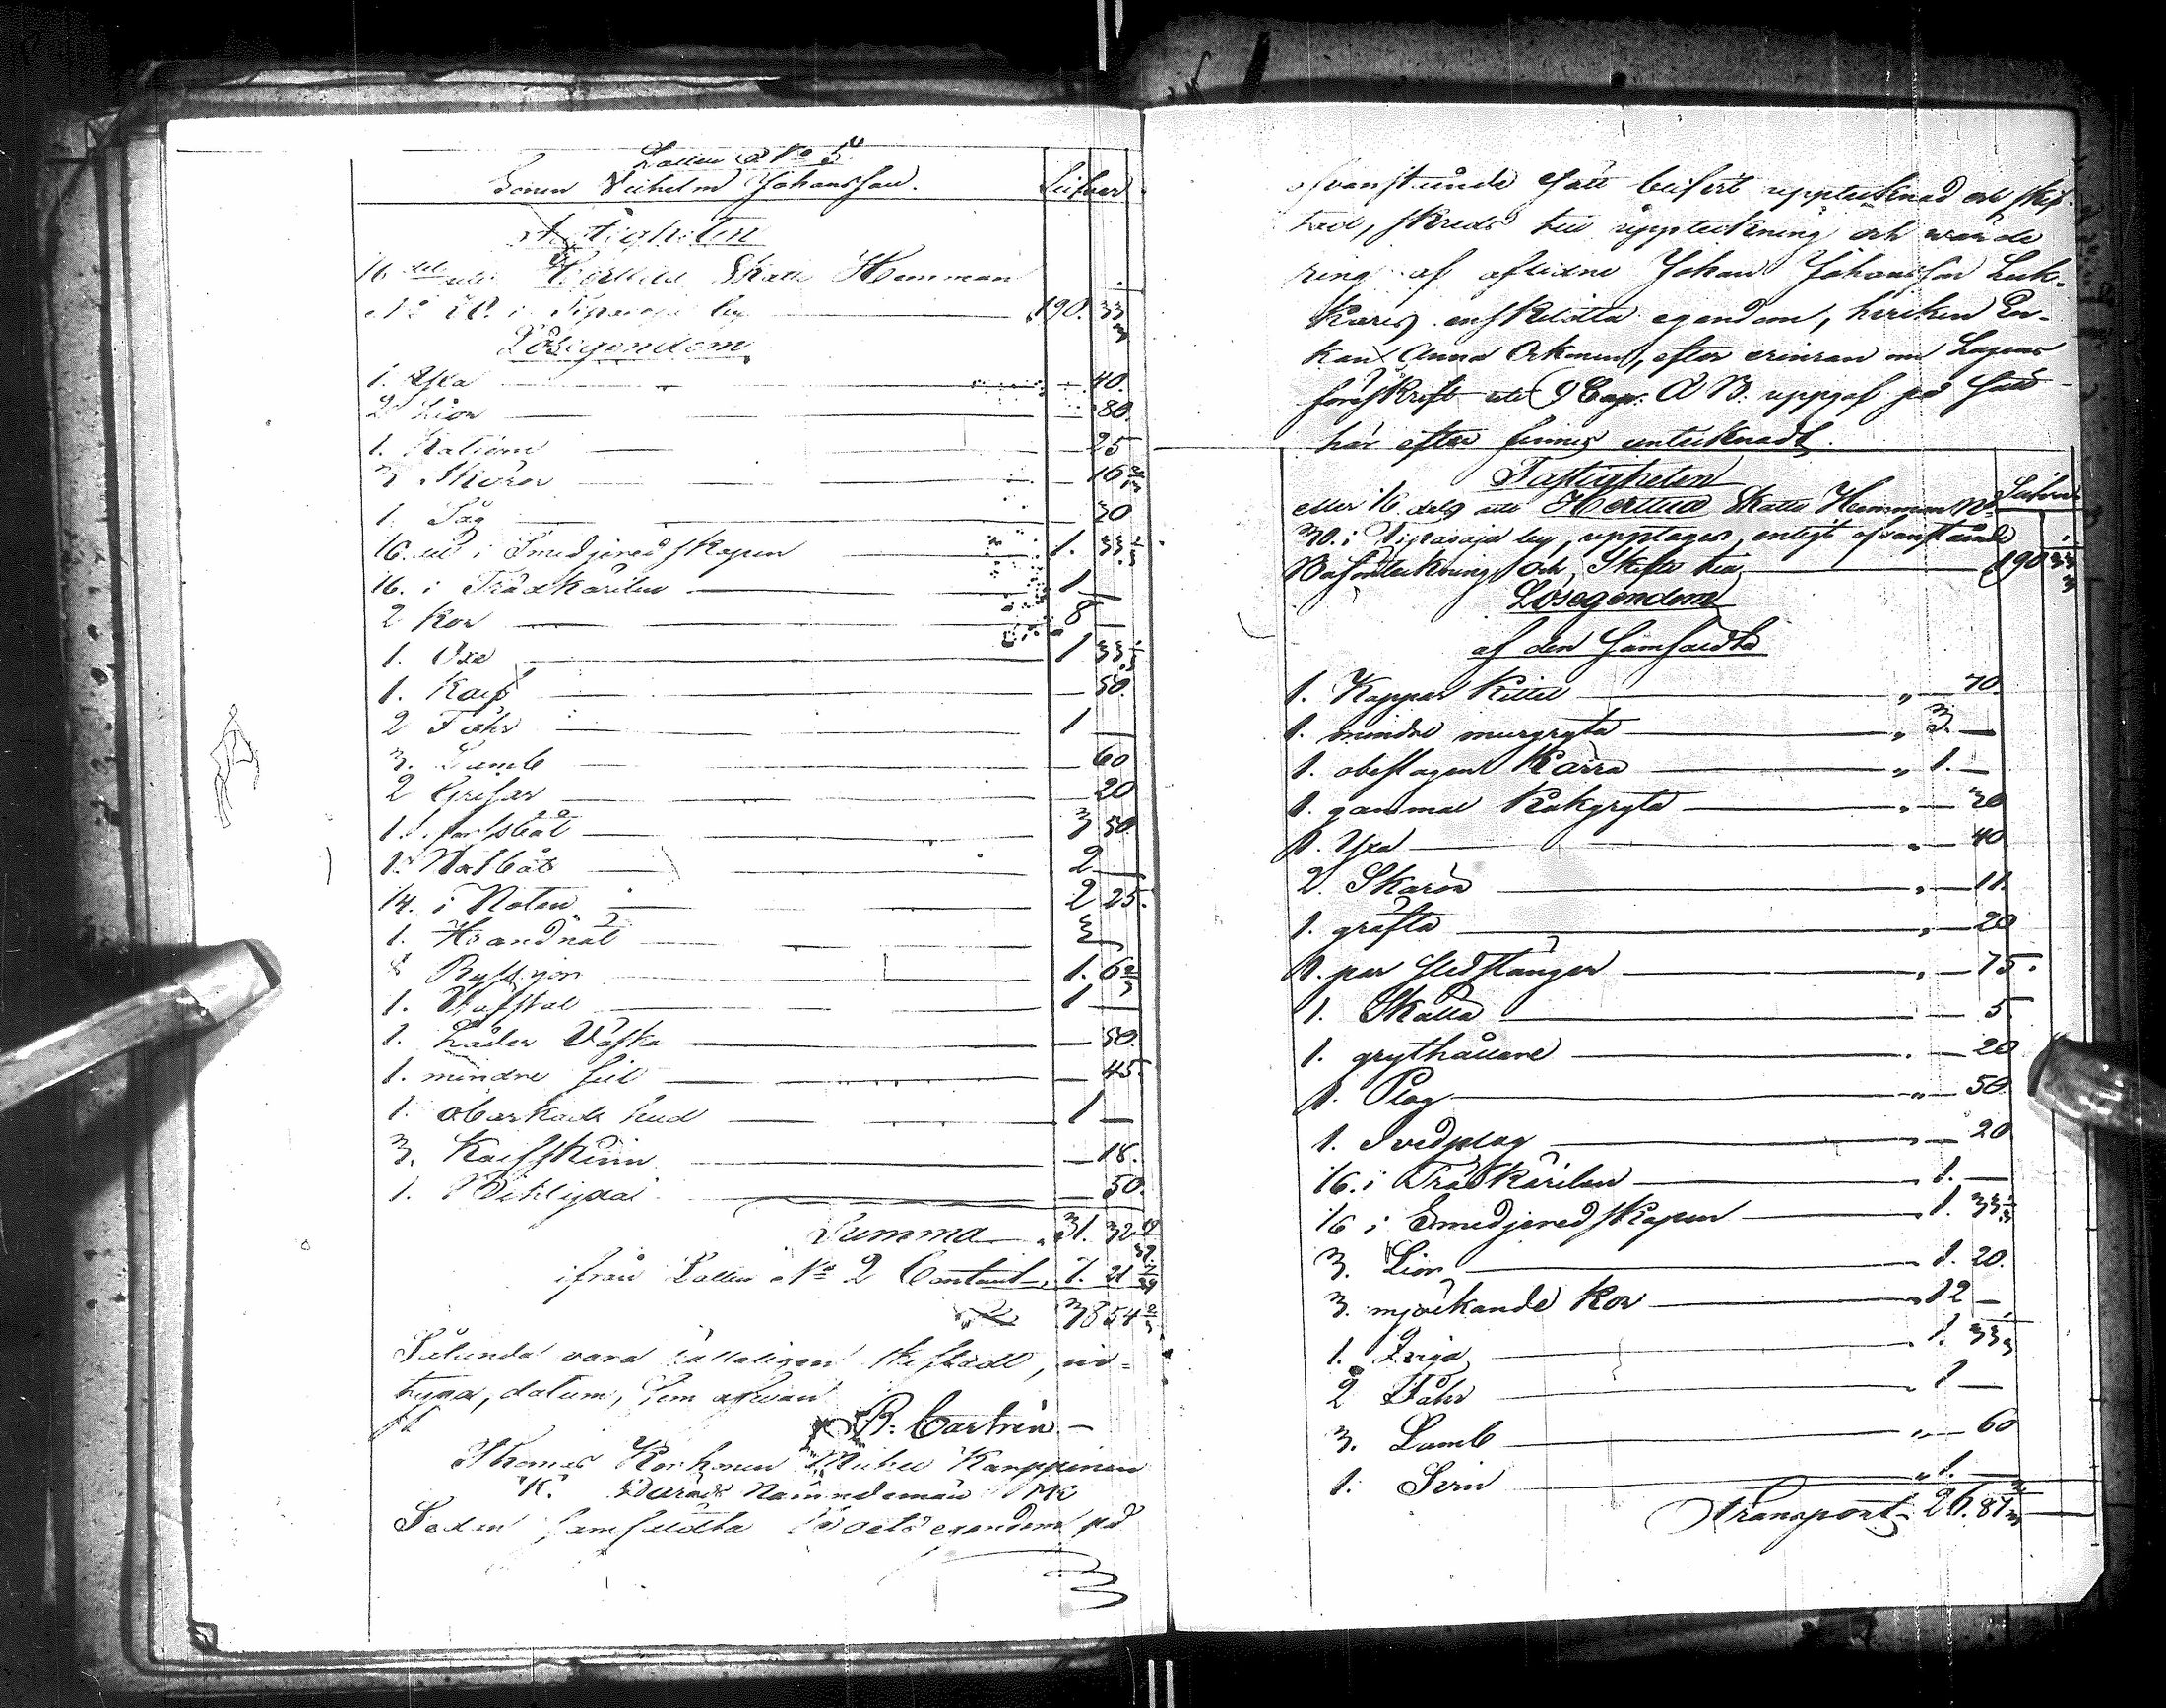 Lotten a No 5.
Sonen Vilhelm Johansson. Silfver
Fastigheten
1/6 del uti Herttua Skatte Hemman
No 30. i Tipasoja by 190. 33 1/3
Lösegendom
1. Yxa — 40.
2 Lior — 80.
1. — 25
3 Skäror — 16 2/3
1. Såg — 30
1/6. del i Smedjeredskapen 1. 33 1/3
1/6. i Trädkärilen 1 —
2 Kor 8 —
1. Oxe 1 33 1/3
1. Kalf — 50.
2 Fåhr 1 —
3. Lamb — 60
2 Grisar — 20
1. forssbåt 3 50.
1. Notbåt 2 —
1/4. i Noten 2 25.
1. Strandnät —
8 Ryssjor 1. 6 2/3
1. 1 —
1. Läder Väska — 50.
1. mindre fäll — 45.
1. obarkade hud 1 —
3. Kalfskinn — 18.
1. — 50.
Summa 31. 32
ifrån Lotten No 2 Contant 7. 21
38 54 2/3
Sålunda vara lottaligen skiftadt, in-
tyga, datum, som ofvan
B: Castrén
Thomas Korhonen Michel Karppinen
K. Härads Nämndemän MK
Sedan samfäldta Boets egendom på
ofvanstående sätt blifvit upptecknad och skif-
tad, skreds till uppteckning och värde
ring af aflidne Johan Johansson Luk-
karis enskildta egendom, hvilken En-
kan Anna Ockman, efter erinran om Lagens
föreskrift uti 9 Cap: Ä B. uppgaf på sätt
här efter finnes anteknadt.
Fastigheten
eller 1/6 dels uti Herttua Skatte Hemman No Silfver
30. i Tipasoja by, upptages, enligt ofvanstående
Boförteckning och Skifte till 190 33 1/3
Lösegendom
af den Samfäldta
1. Koppar Kittel " — 70.
1. mindre murgryta " 3. —
1. obeslagen Kärra " 1. —
1. gammal Kokgryta " — 30
1. Yxa " — 40
2. Skäror " — 11.
1. gräfta " — 20
1. par stedstänger " — 75.
1. Skälla — 5.
1. grythållare " — 20
1. Plog " — 50
1. Svedplog " — 20
1/6. i Trädkärilen " 1. —
1/6 i Smedjeredskapen " 1. 33 1/3
3. Lior " 1. 20.
3. mjölkande Kor " 12 —
1. Qviga " 1. 33 1/3
2 Fåhr " 1 —
3. Lamb " — 60
1. Svin " 1. —
Transport 26. 87 2/3